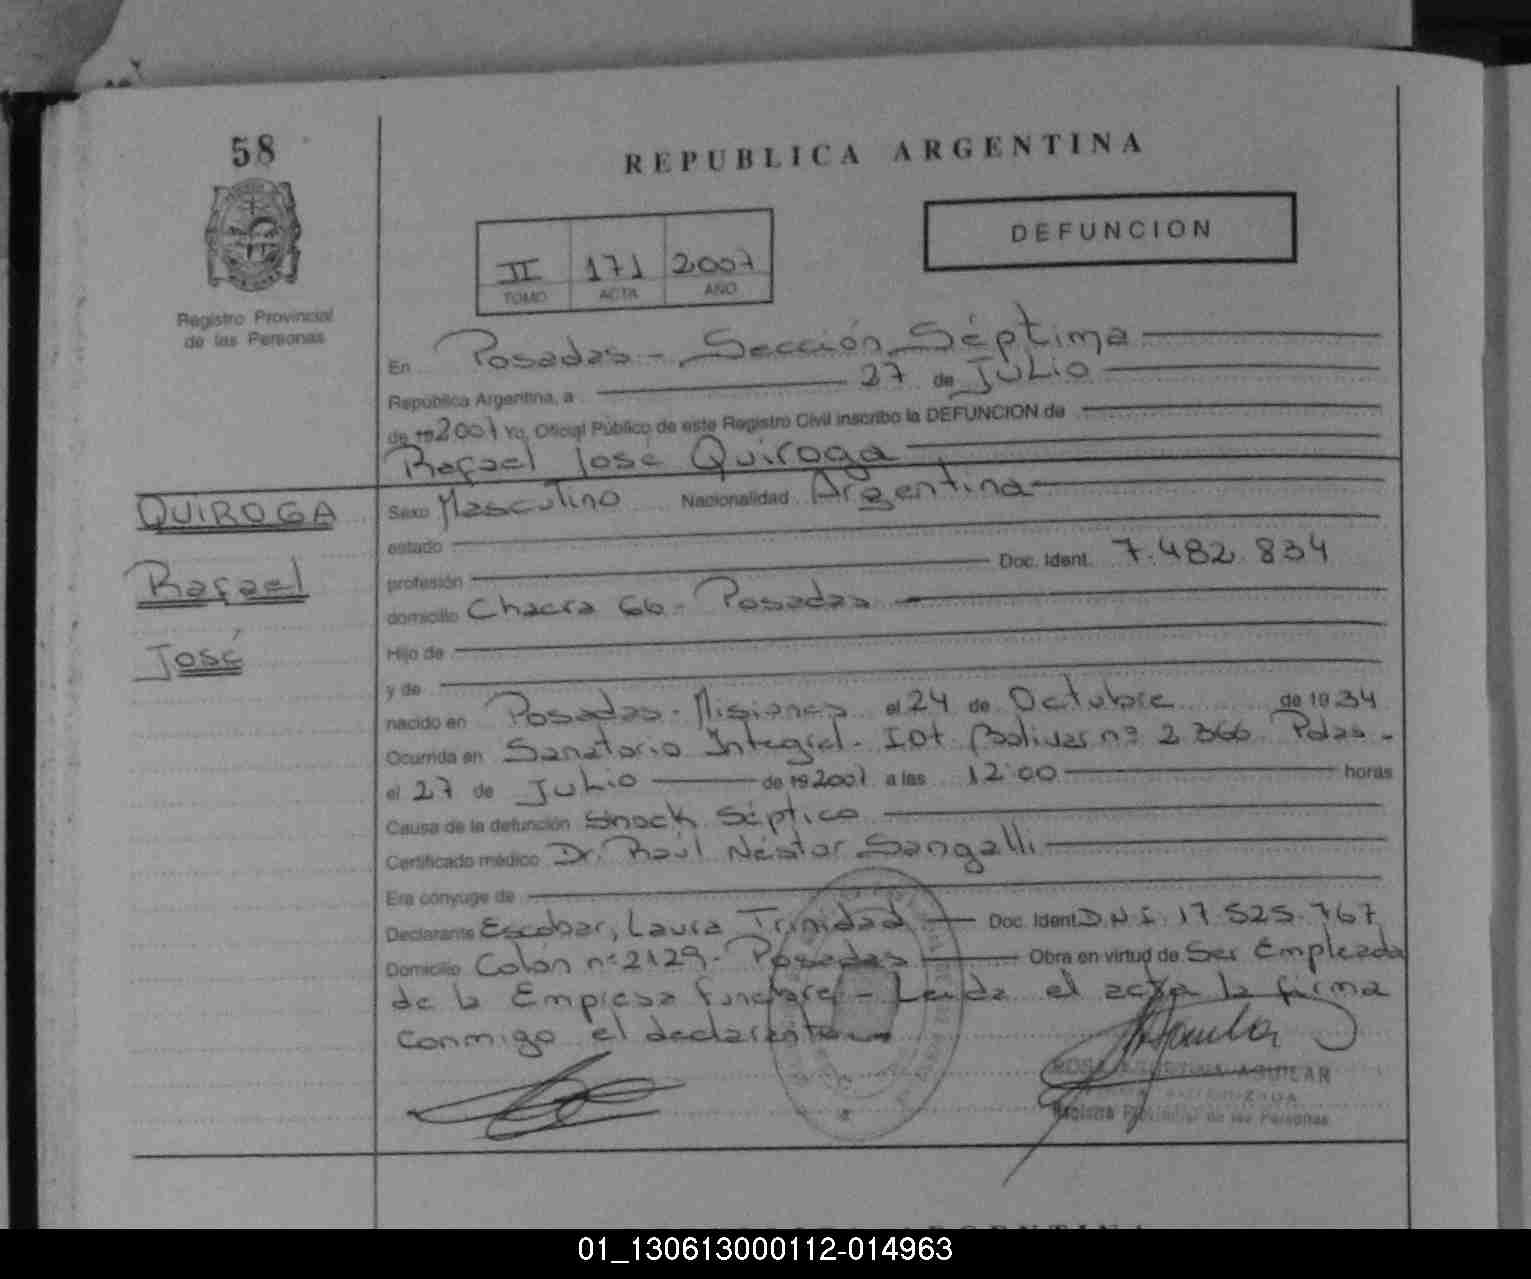 58
REPUBLICA ARGENTINA
Registro Provincial
de las Personas
II 171 2007
TOMO ACTA AÑO
DEFUNCION
En Posadas - Sección Séptima
República Argentina, a 27 de Julio
de 19 2007 Yo, Oficial Público de este Registro Civil inscribo la DEFUNCION de
Rafael José Quiroga
QUIROGA
Rafael
José
Sexo Masculino Nacionalidad Argentina
estado
profesión Doc. Ident. 7.482.834
domicilio Chacra 66 - Posadas
Hijo de
y de
nacido en Posadas - Misiones el 24 de Octubre de 19 34
Ocurrida en Sanatorio Integral - Bolivar nº 2366 Pdas -
el 27 de Julio de 19 2007 a las 12:00 horas
Causa de la defunción Shock Séptico
Certificado médico Dr. Raul Néstor Sangalli
Era cónyuge de
Declarante Escobar, Laura Trinidad Doc. Ident. D.N.I. 17.525.767
Domicilio Colón nº 2129 - Posadas Obra en virtud de Ser Empleada
de la Empresa Funebre - Leida el acta la firma
conmigo el declarante
AGUILAR
Registro Provincial de las Personas
ARGENTINA
01_130613000112-014963